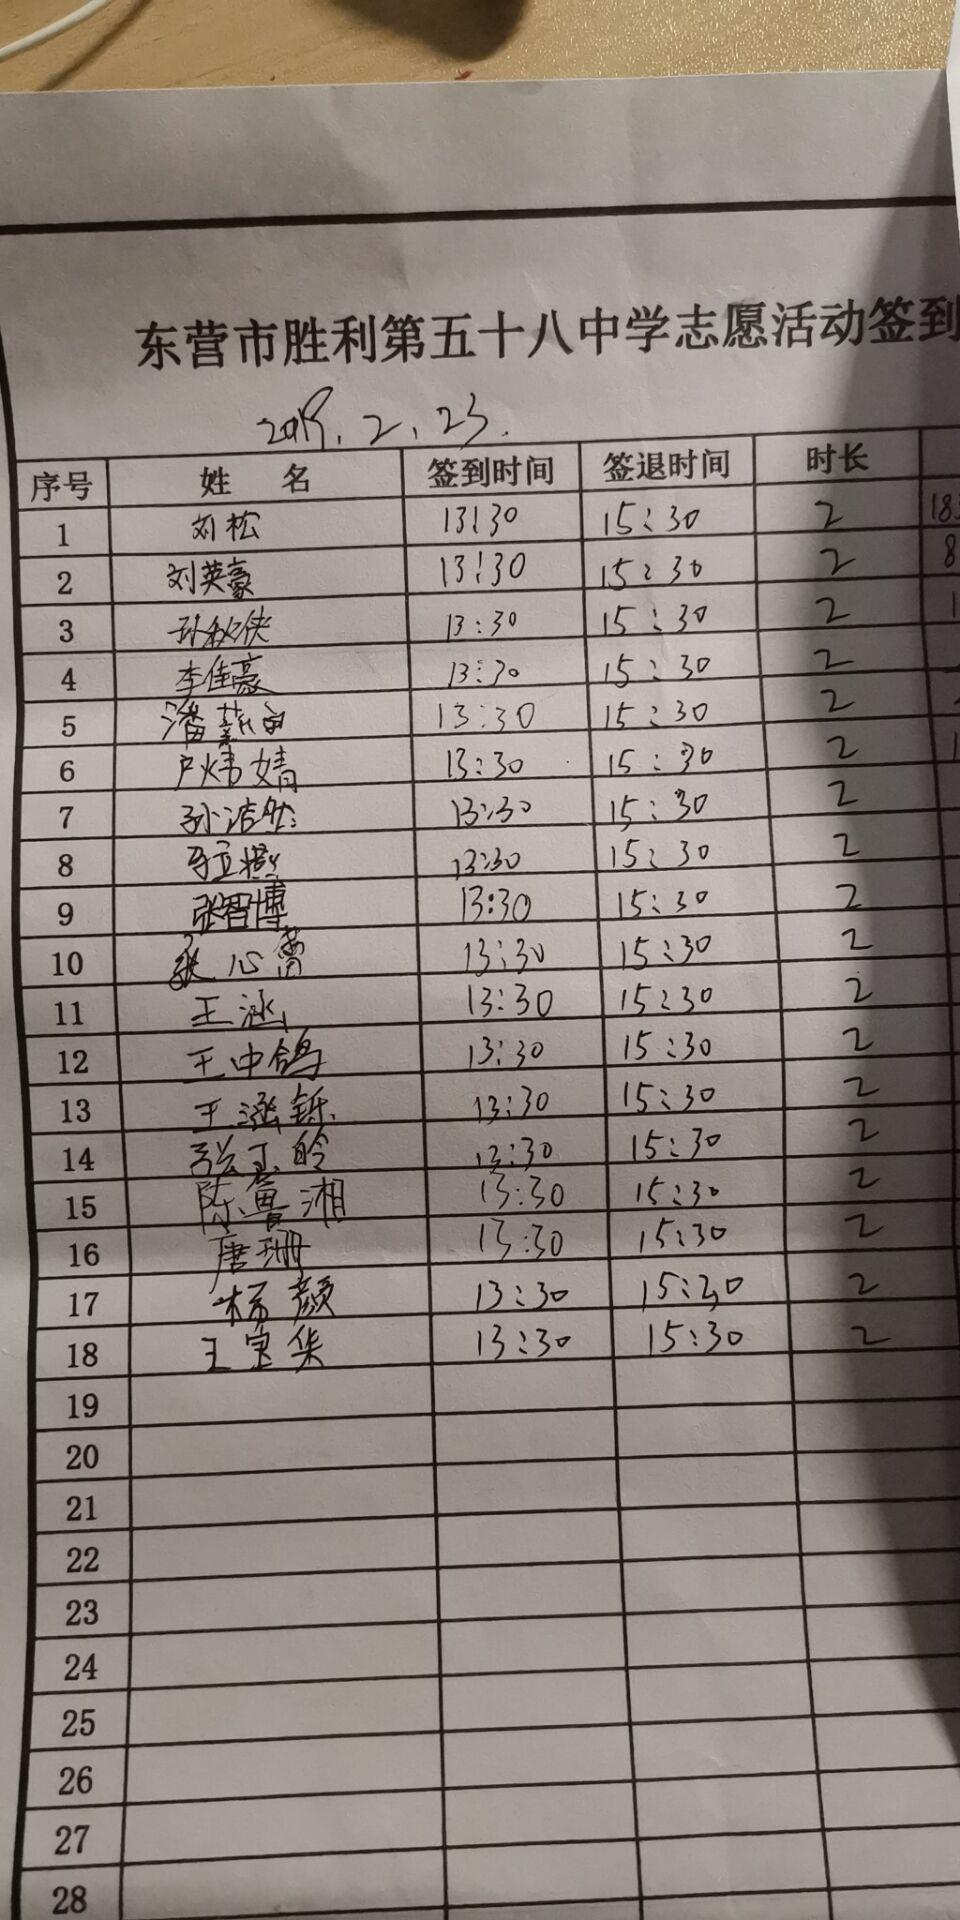 东营市胜利第五十八中学志愿活动签到
2019.2.23.
序号 姓 名 签到时间 签退时间 时长
1 刘松 13:30 15:30 2
2 刘英豪 13:30 15:30 2
3 孙秋侠 13:30 15:30 2
4 李佳豪 13:30 15:30 2
5 潘 13:30 15:30 2
6 卢炜婧 13:30 15:30 2
7 孙浩然 13:30 15:30 2
8 13:30 15:30 2
9 张智博 13:30 15:30 2
10 张心茜 13:30 15:30 2
11 王涵 13:30 15:30 2
12 王中鸽 13:30 15:30 2
13 王涵铄 13:30 15:30 2
14 张玉昤 13:30 15:30 2
15 陈鲁湘 13:30 15:30 2
16 唐珊 13:30 15:30 2
17 杨颜 13:30 15:30 2
18 王宝 13:30 15:30 2
19
20
21
22
23
24
25
26
27
28